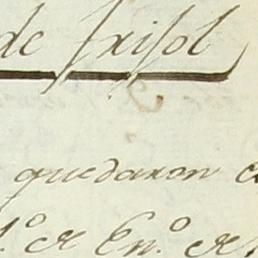 de frisol
quedaron
1.º de En.º de